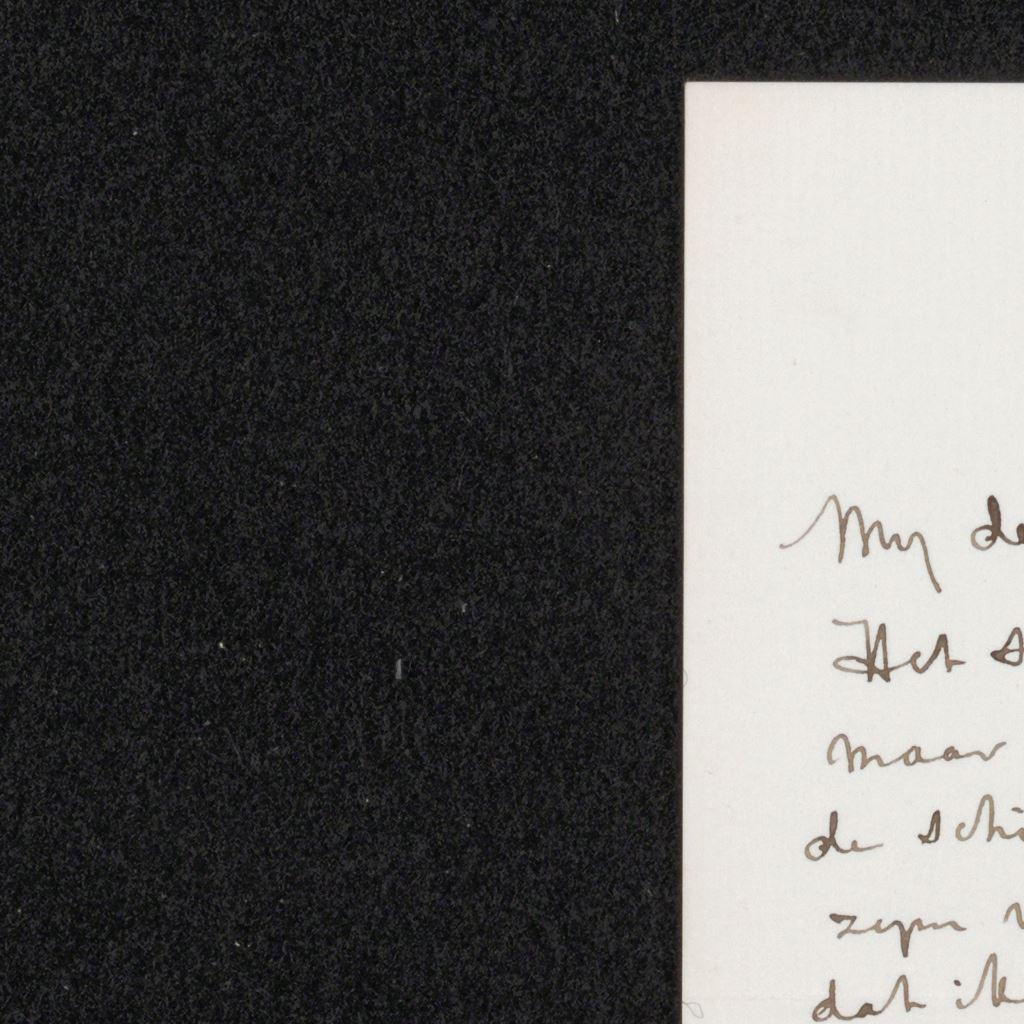 My de
Het s
maar
de schi
zijn
dat ik